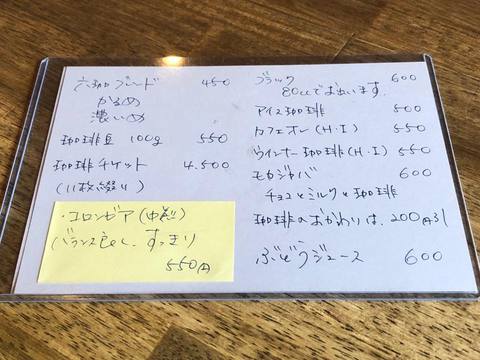 六珈ブレンド 450
かるめ
濃いめ
珈琲豆 100g 550
珈琲チケット 4.500
(11枚綴り)
・コロンビア(中煎)
バランス良く、すっきり
550円
ブラック 600
80ccでお出します。
アイス珈琲 500
カフェオレ(H・I) 550
ウインナー珈琲(H・I) 550
モカジャバ 600
チョコとミルクと珈琲
珈琲のおかわりは、200円引
ぶどうジュース 600